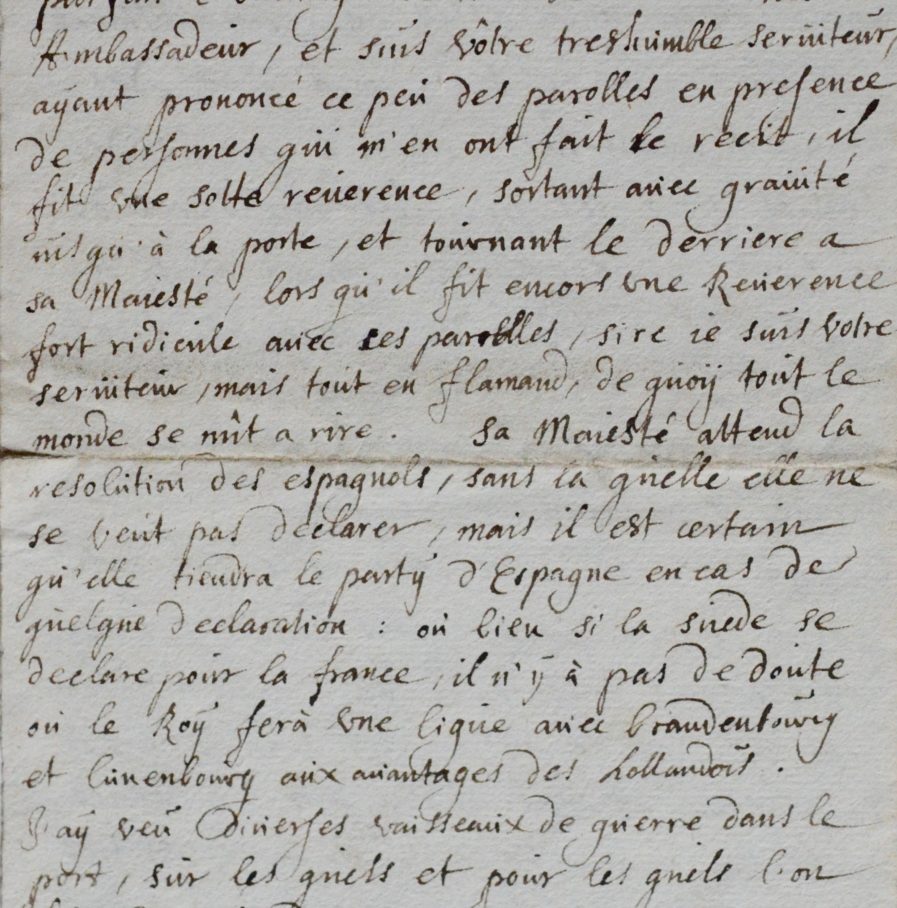 Ambassadeur, et suis vôtre treshumble seruiteur,
ayant prononcé ce peu des parolles en presence
de personnes qui m'en ont fait le recit, il
fit vne sotte reuerence, sortant auec grauité
iusqu'à la porte, et tournant le derriere a
sa Maiesté, lors qu'il fit encors vne Reuerence
fort ridicule auec ces parolles, sire ie suis votre
seruiteur, mais tout en flamand, de quoÿ tout le
monde se mît a rire. sa Maiesté attend la
resolution des espagnols, sans la quelle elle ne
se veut pas declarer, mais il est certain
qu'elle tiendra le partÿ d'Espagne en cas de
quelque declaration : ou bien si la suede se
declare pour la france, il n'ÿ à pas de doute
ou le Roÿ ferà vne ligue auec brandenbourg
et lunenbourg aux auantages des hollandois.
J'aÿ veu diuerses vaisseaux de guerre dans le
port, sur les quels et pour les quels l'on